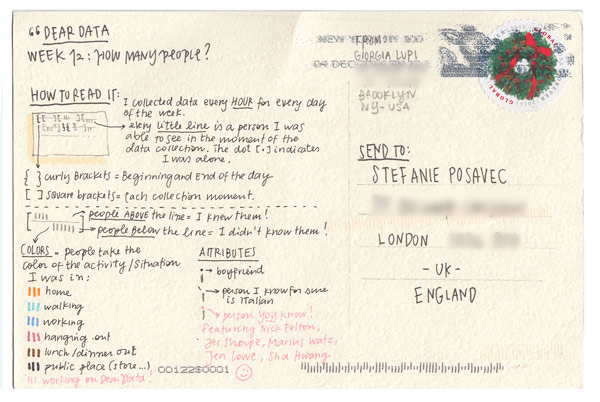 “ DEAR DATA
WEEK 12: HOW MANY PEOPLE?
HOW TO READ IT:
I collected data every HOUR for every day
of the week.
every little line is a person I was
able to see in the moment of the
data collection. The dot [•] indicates
I was alone.
{ } curly Brackets = Beginning and End of the day
[ ] square brackets = Each collection moment.
people ABOVE the line = I knew them!
people Below the line = I didn't know them!
COLORS = people take the
color of the activity/situation
I was in:
home
walking
working
hanging out
lunch/dinner out
public place (store...)
working on Dear Data!
ATTRIBUTES
boyfriend
person I know for sure
is Italian
person you know!
Featuring Nick Felton,
Jer Thorpe, Marius Watz,
Jen Lowe, Sha Hwang
0012250001
FROM
GIORGIA LUPI
BROOKLYN
NY-USA
GLOBAL
SEND TO:
STEFANIE POSAVEC
LONDON
- UK -
ENGLAND